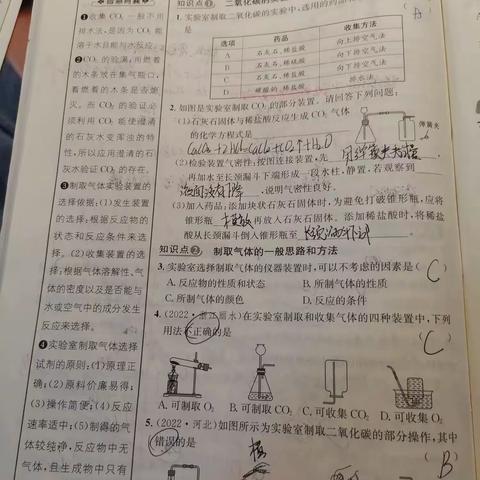 ❶收集 CO₂ 一般不用
排水法,是因为 CO₂ 能
溶于水且能与水反应。
❷CO₂ 的验满:用燃着
的木条放在集气瓶口,
看燃着的木条是否熄
灭。而 CO₂ 的验证必
须利用 CO₂ 能使澄清
的石灰水变浑浊的特
性,所以应用澄清的石
灰水验证 CO₂ 的存在。
❸制取气体实验装置的
选择依据:(1)发生装置
的选择:根据反应物的
状态和反应条件来选
择。(2)收集装置的选
择:根据气体溶解性、气
体的密度以及是否能与
水或空气中的成分发生
反应来选择。
❹实验室制取气体选择
试剂的原则:(1)原理正
确;(2)原料价廉易得;
(3)操作简便;(4)反应
速率适中;(5)制得的气
体较纯净,反应物中无
气体,且生成物中只有
1.实验室制取二氧化碳的实验中,选用的药品
选项 药品 收集方法
A 石灰石、稀盐酸 向上排空气法
B 石灰石、稀硫酸 向下排空气法
C 石灰石、稀盐酸 向下排空气法
排水法
2.如图是实验室制取 CO₂ 的部分装置。请回答下列问题:
(1)石灰石固体与稀盐酸反应生成 CO₂ 气体
的化学方程式是
弹簧夹
(2)检验装置气密性:按图连接装置,先
再加水至长颈漏斗下端形成一段水柱,静置,若观察到
,说明气密性良好。
(3)加入药品:添加块状石灰石固体时,为避免打破锥形瓶,应将
锥形瓶 横放 再放入石灰石固体。添加稀盐酸时,将稀盐
酸从长颈漏斗倒入锥形瓶至
知识点❷ 制取气体的一般思路和方法
3.实验室选择制取气体的仪器装置时,可以不考虑的因素是( C )
A.反应物的性质和状态 B.所制气体的性质
C.所制气体的颜色 D.反应的条件
4.(2022·浙江丽水)在实验室制取和收集气体的四种装置中,下列
用法不正确的是 ( C )
A.可制取 O₂ B.可制取 CO₂ C.可收集 CO₂ D.可收集 O₂
5.(2022·河北)如图所示为实验室制取二氧化碳的部分操作,其中
错误的是 ( B )